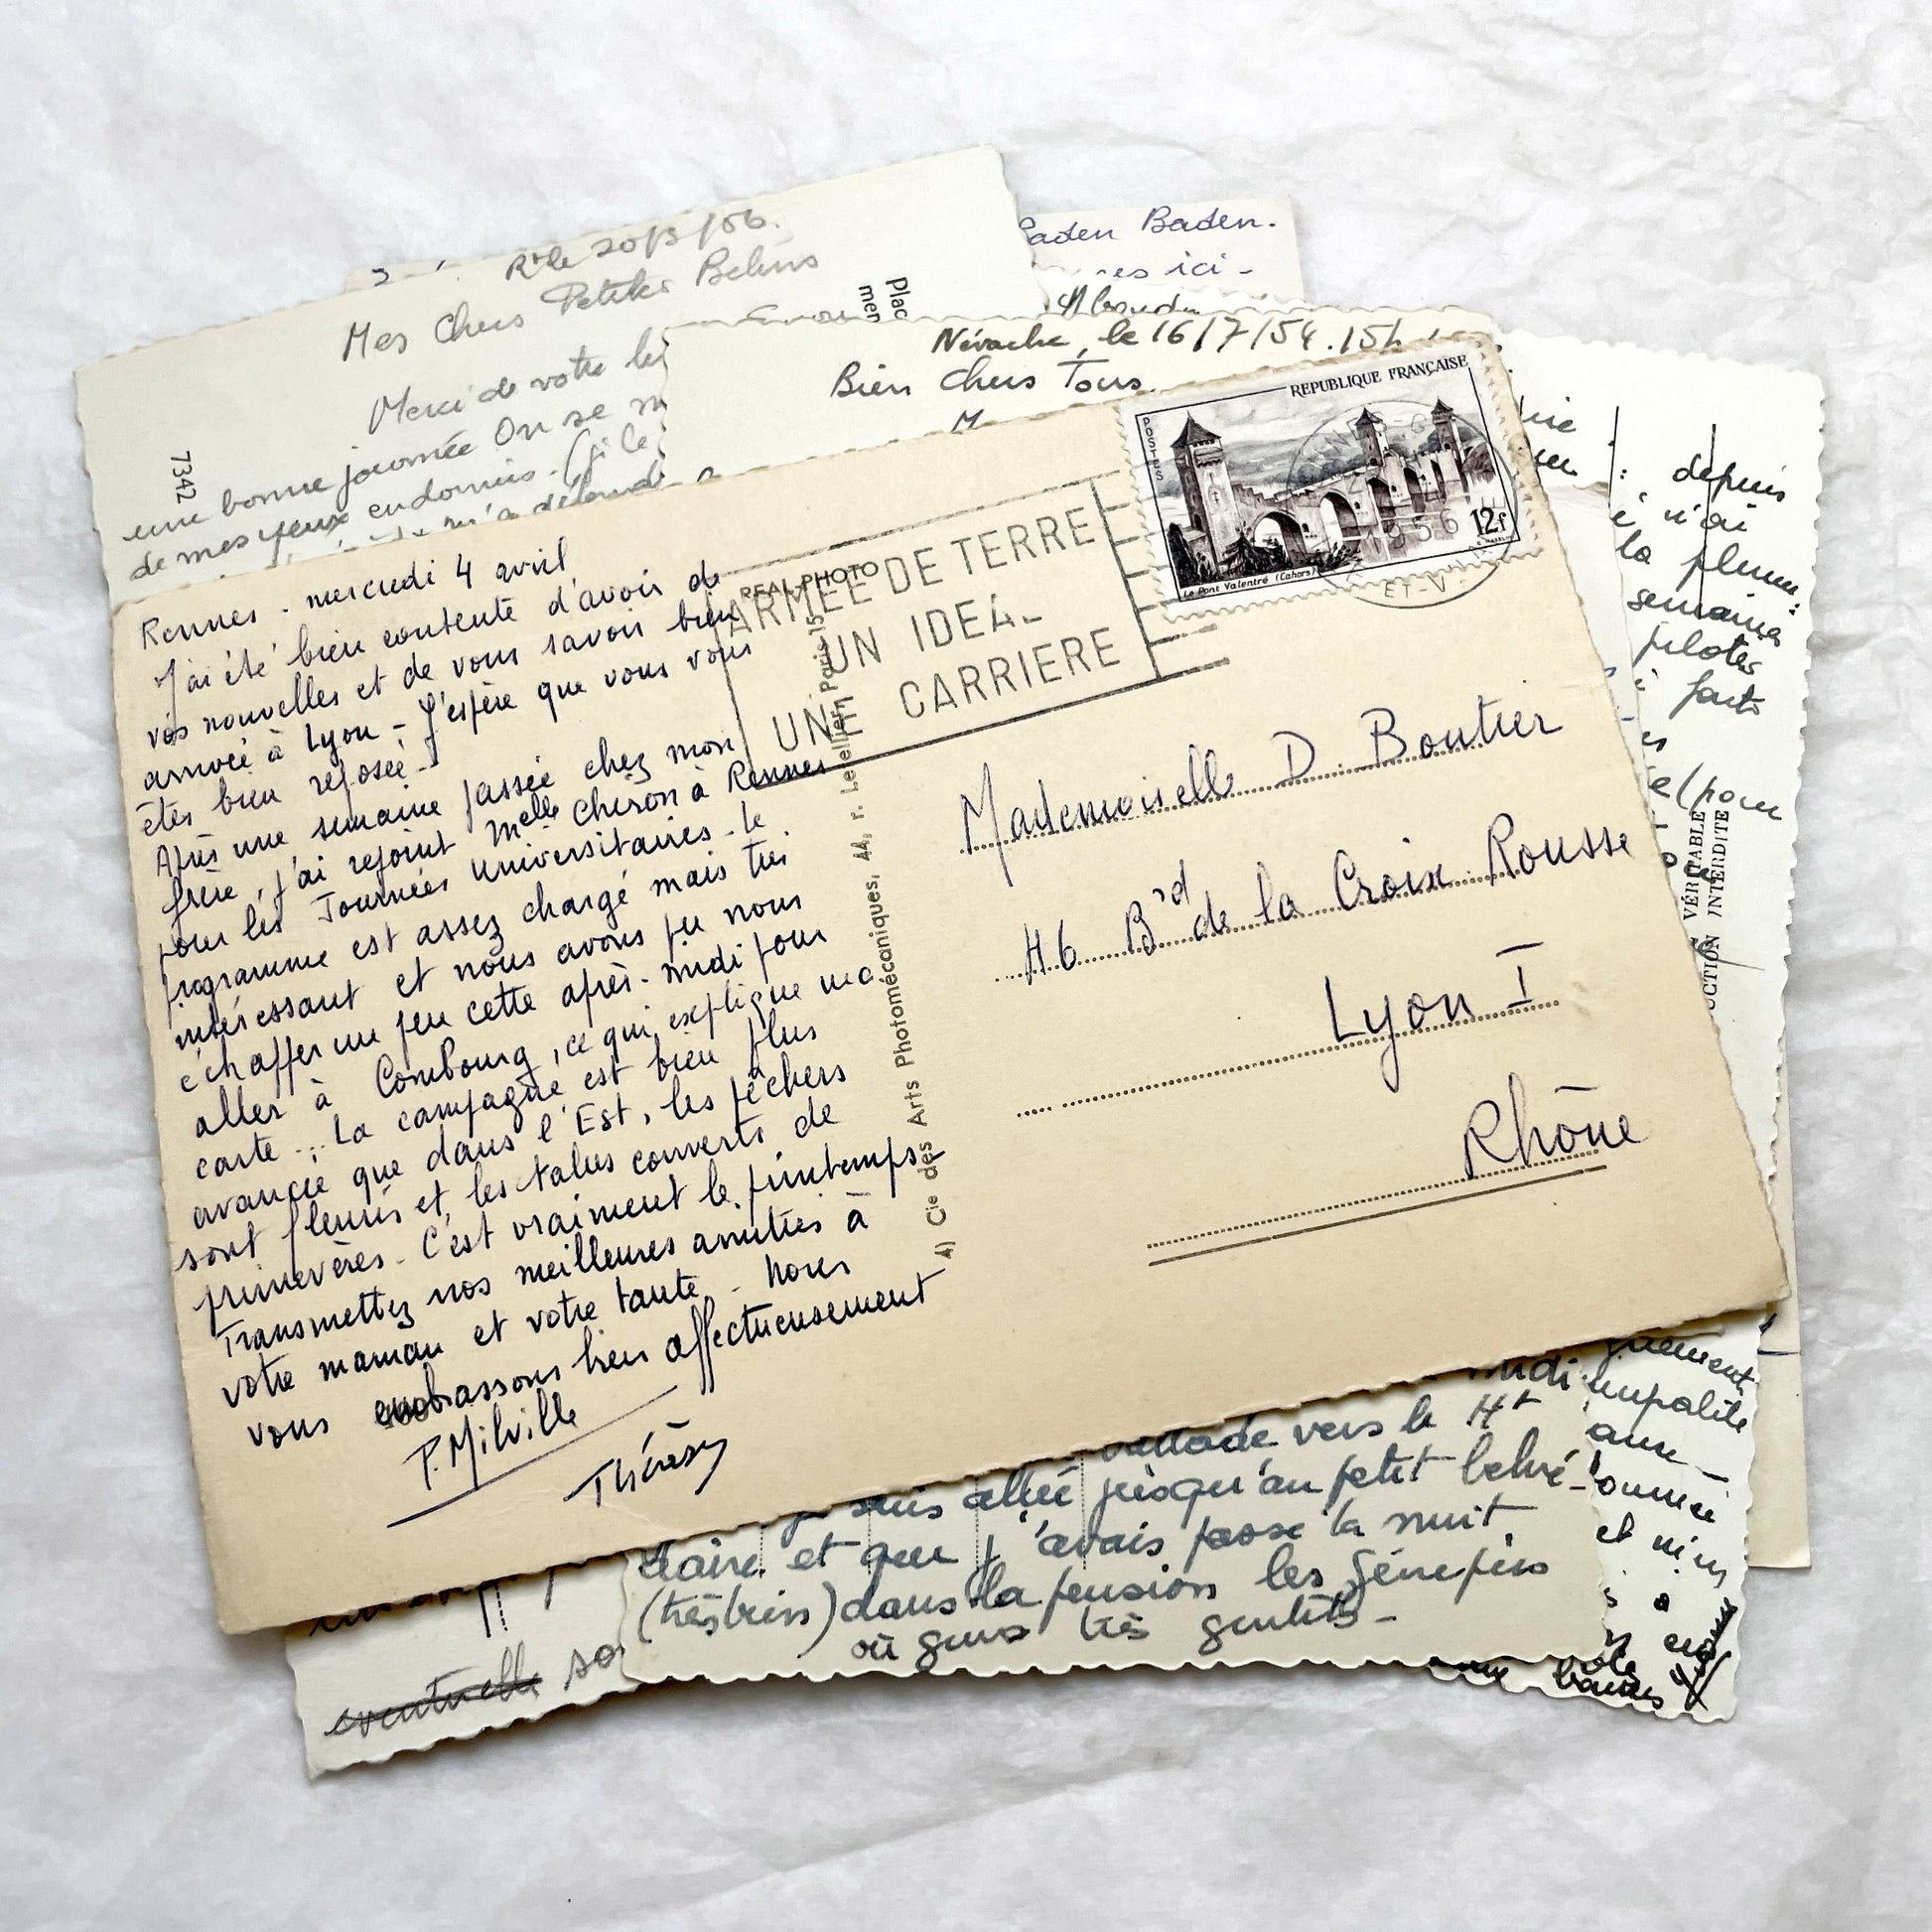 20/3/56.
Mes Chers Petites
Merci de votre
une bonne journée On se
de mes yeux endormis. (si le
7342
Plac
men
Baden Baden.
ici -
Névache, le 16/7/54. 15h
Bien Chers Tous.
REPUBLIQUE FRANÇAISE
POSTES
12f
Le Pont Valentré (Cahors)
1956
ET-V
ARMEE DE TERRE
UN IDEAL
UN CARRIERE
REAL-PHOTO
Cie des Arts Photomécaniques, 44, r. Letellier, Paris-15
Rennes - mercredi 4 avril
J'ai été bien contente d'avoir de
vos nouvelles et de vous savoir bien
arrivée à Lyon - J'espère que vous vous
êtes bien reposée -
Après une semaine passée chez mon
frère, j'ai rejoint Melle Chéron à Rennes
pour les Journées Universitaires - le
programme est assez chargé mais très
intéressant et nous avons pu nous
échapper un peu cette après-midi pour
aller à Combourg, ce qui explique ma
carte... La campagne est bien plus
avancée que dans l'Est, les pêchers
sont fleuris et les talus couverts de
primevères - C'est vraiment le printemps
Transmettez nos meilleures amitiés à
votre maman et votre tante - Nous
vous embrassons bien affectueusement
P. Milville
Thérèse
Mademoiselle D. Boutier
46 Brd de la Croix Rousse
Lyon I
Rhône
depuis
n'ai
la
semaine
piloter
(pour
VÉRITABLE
INTERDITE
vers le Ht
suis allée jusqu'au petit belvé-
daire et que j'avais passé la nuit
(très bien) dans la pension les Génépius
où gens très gentils -
eventuelle